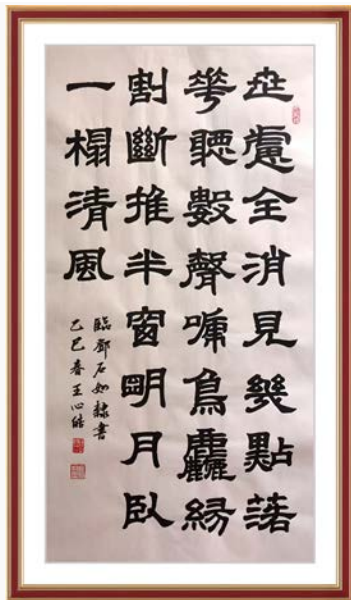 世慮全消見幾點落
華聽數聲啼鳥塵緣
割斷推半窗明月臥
一榻清風
臨鄧石如隸書
乙巳春王心皓